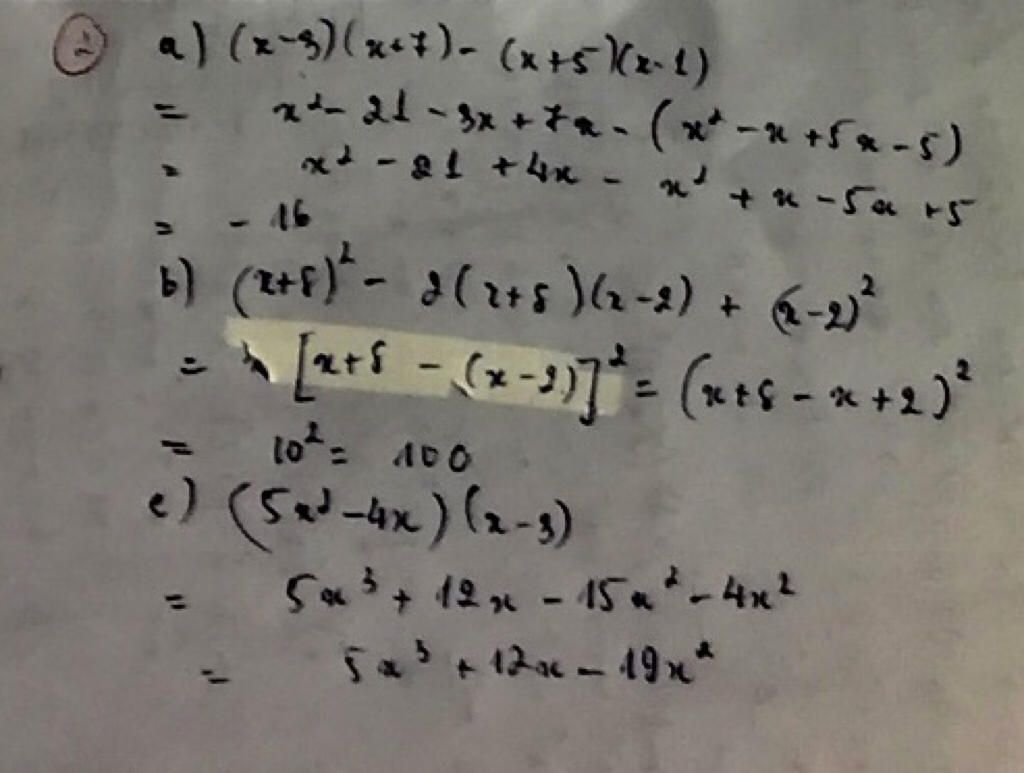 2
a) (x-3)(x+7) - (x+5)(x-1)
= x² - 21 - 3x + 7x - (x² - x + 5x - 5)
= x² - 21 + 4x - x² + x - 5x + 5
= - 16
b) (x+8)² - 2(x+8)(x-2) + (x-2)²
= [x+8 - (x-2)]² = (x+8 - x + 2)²
= 10² = 100
c) (5x² - 4x)(x-3)
= 5x³ + 12x - 15x² - 4x²
= 5x³ + 12x - 19x²